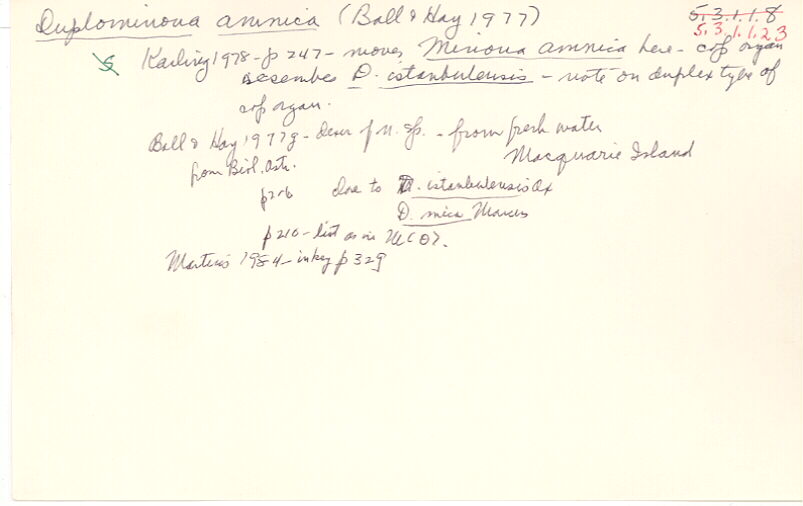 Duplominona amnica (Ball & Hay 1977)
5.3.1.1.8
5.3.1.1.23
Karling 1978 - p 247 - moves Minona amnica here - cop organ
resembles D. istanbulensis - note on duplex type of
cop organ.
Ball & Hay 1977g - descr of n. sp. - from fresh water
Macquarie Island
from Biol. Abstr.
p 206 close to D. istanbulensis Ax
D. mica Marcus
p 210 - list as in
Martens 1984 - in key p 329